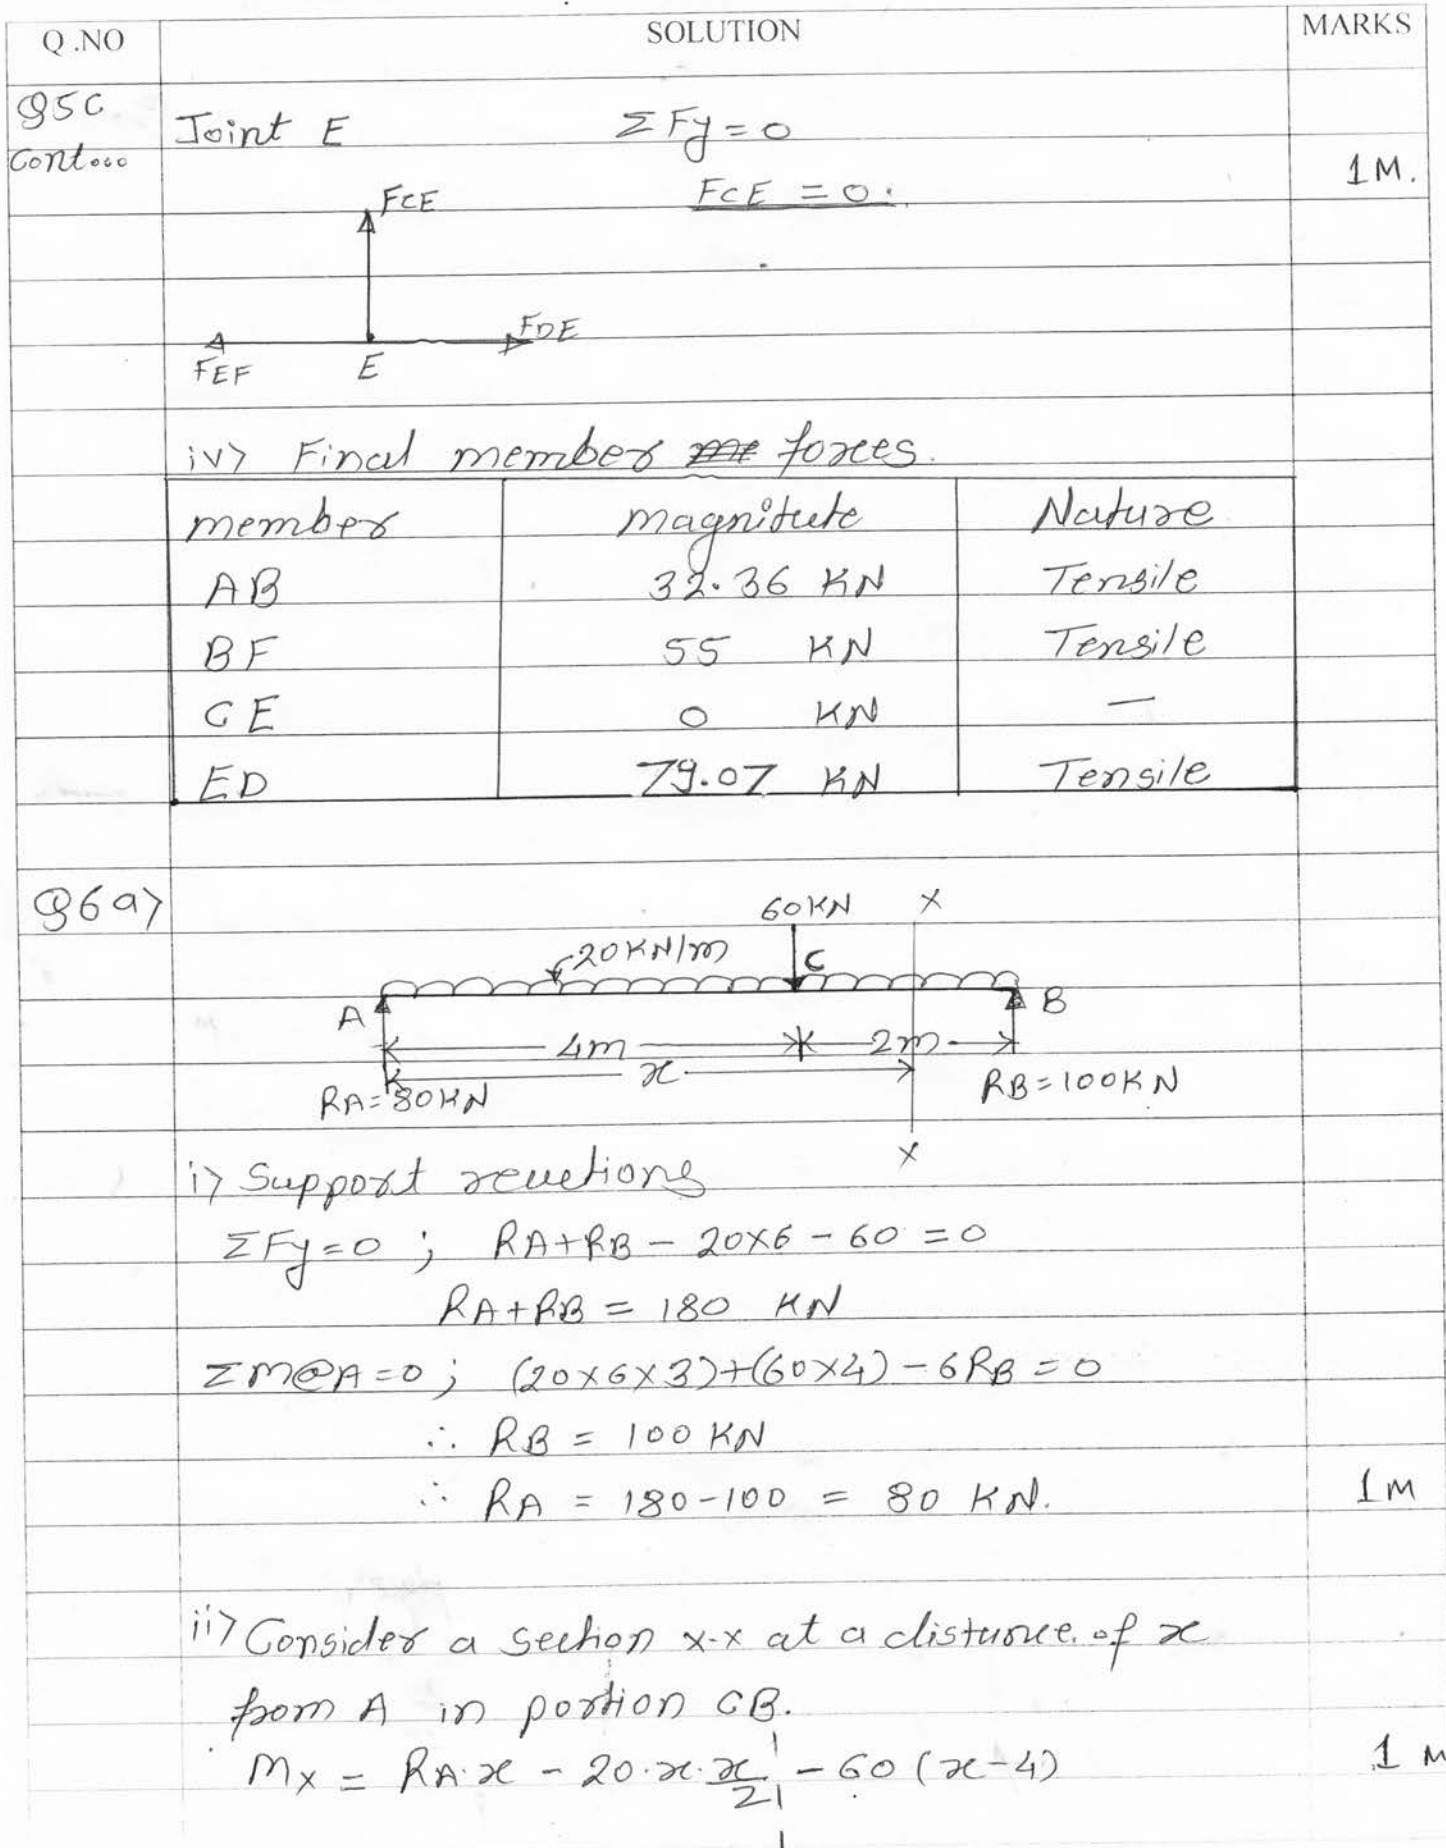 Q.NO SOLUTION MARKS
Q5C Joint E ΣFy = 0
cont... 1M.
FCE FCE = 0.
FDE
FEF E
iv> Final member forces.
member magnitute Nature
AB 32.36 KN Tensile
BF 55 KN Tensile
CE 0 KN —
ED 79.07 KN Tensile
Q6a>
60KN X
20KN/m C
A B
4m 2m
x
RA=80KN RB=100KN
X
i> Support reactions
ΣFy=0 ; RA+RB - 20×6 - 60 = 0
RA+RB = 180 KN
ΣM@A=0 ; (20×6×3)+(60×4) - 6RB = 0
∴ RB = 100 KN
∴ RA = 180-100 = 80 KN. 1M
ii> Consider a section x-x at a distance of x
from A in portion CB.
Mx = RA·x - 20·x·x/2 - 60(x-4) 1M